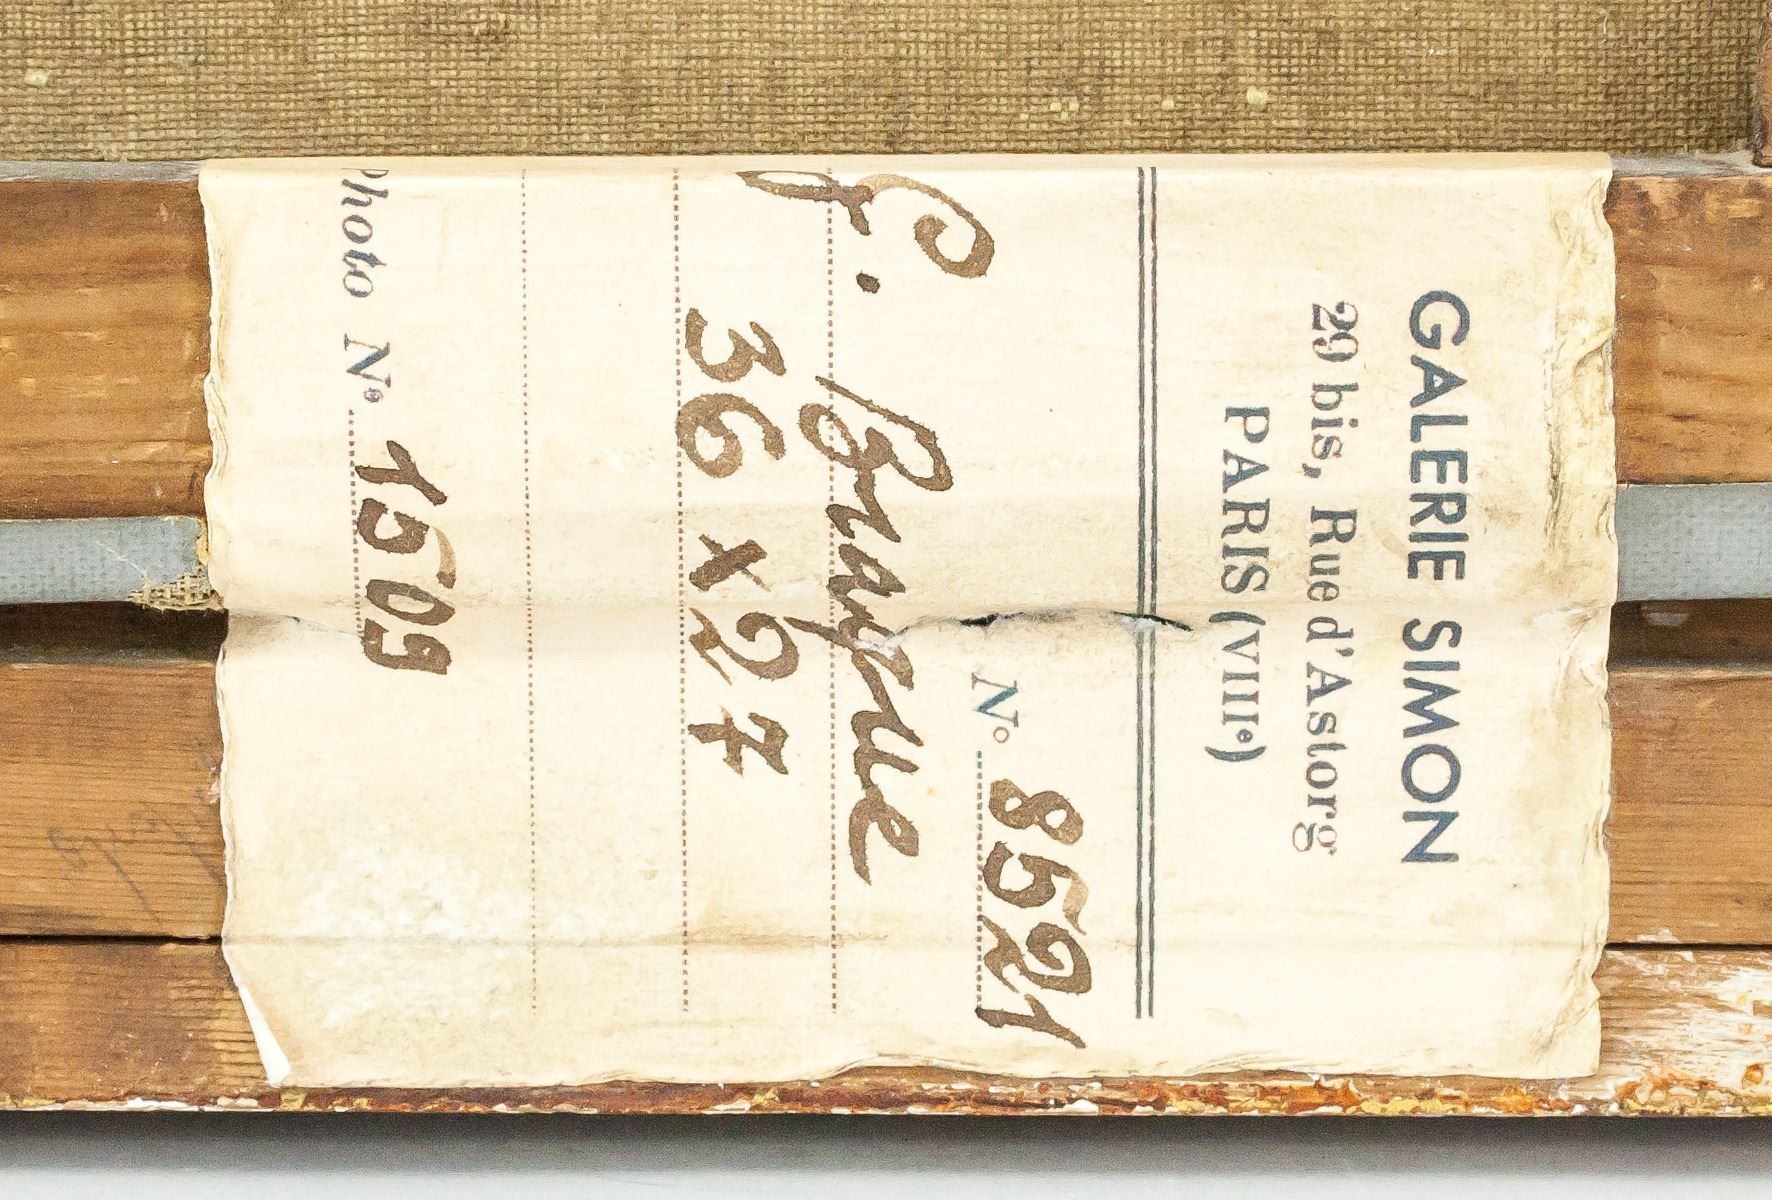 GALERIE SIMON
29 bis, Rue d'Astorg
PARIS (VIIIe)
No 8521
G. Braque
36 x 27
Photo No 1509